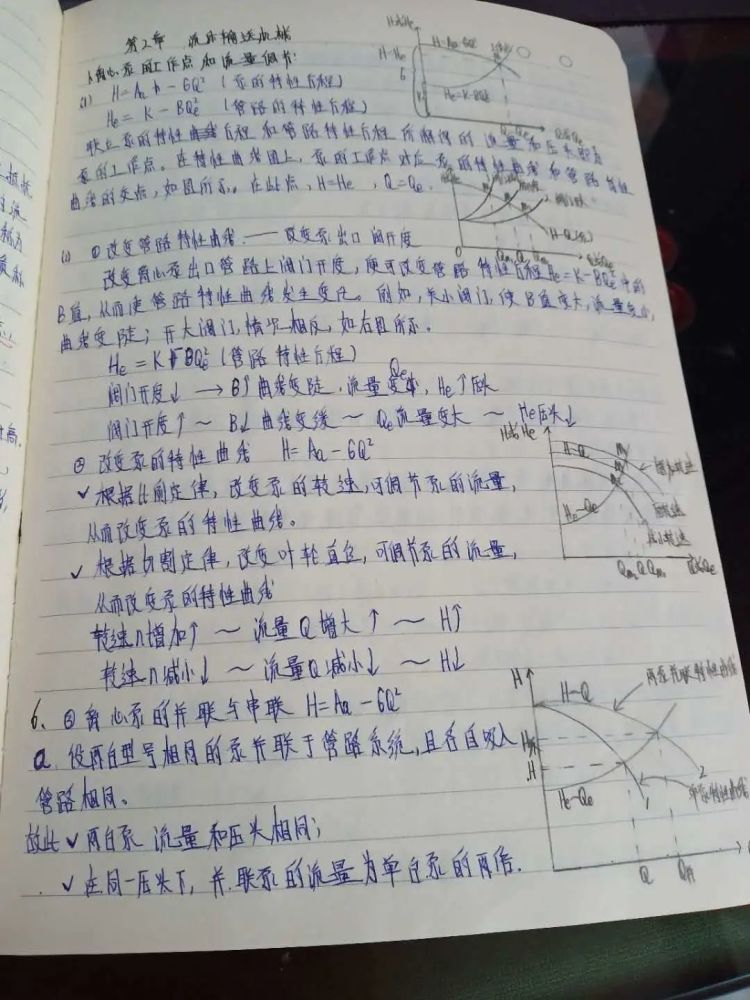 第2章 流体输送机械
离心泵的工作点和流量调节
(1) H=Aa - GQ² (泵的特性方程)
He = K - BQe² (管路的特性方程)
联立泵的特性方程和管路特性方程所解得的流量和压头即为
泵的工作点。在特性曲线图上,泵的工作点对应泵的特性曲线和管路特性
曲线的交点,如图所示。在此点,H=He,Q=Qe.
① 改变管路特性曲线 —— 改变泵出口阀开度
改变离心泵出口管路上阀门开度,便可改变管路特性方程He=K-BQe²中的
B值,从而使管路特性曲线发生变化。例如,关小阀门,使B值变大,流量变小,
曲线变陡;开大阀门,情况相反,如右图所示。
He=K+BQe² (管路特性方程)
阀门开度↓ → B↑ 曲线变陡,流量Qe变小,He↑压头
阀门开度↑ ~ B↓ 曲线变缓 ~ Qe流量变大 ~ He压头↓
② 改变泵的特性曲线 H=Aa-GQ²
✓ 根据比例定律,改变泵的转速,可调节泵的流量,
从而改变泵的特性曲线。
✓ 根据切割定律,改变叶轮直径,可调节泵的流量,
从而改变泵的特性曲线
转速n增加↑ ~ 流量Q增大↑ ~ H↑
转速n减小↓ ~ 流量Q减小↓ ~ H↓
6、③ 离心泵的并联与串联 H=Aa-GQ²
a. 设两台型号相同的泵并联于管路系统,且各自吸入
管路相同。
故此 ✓ 两台泵 流量和压头相同;
✓ 在同一压头下,并联泵的流量为单台泵的两倍.
H或He
H=Aa-GQ²
H=He
He=K-BQe²
Q=Qe
Q或Qe
H-Q(泵)
H或He
H-Q
增加转速
原转速
减小转速
He-Qe
Q或Qe
H
H-Q
两泵并联特性曲线
H并
H
He-Qe
单泵特性曲线
1
2
Q
Q并